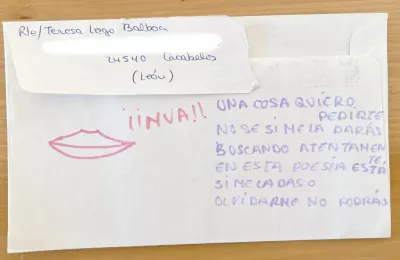 Rte/Teresa Lago Balboa
24540 Cacabelos
(León)
¡¡INVA!!
UNA COSA QUIERO
PEDIRTE
NO SE SI ME LA DARÁS
BUSCANDO ATENTAMEN
TE,
EN ESTA POESÍA ESTÁ
SI ME LA DAS O
OLVIDARME NO PODRÁS